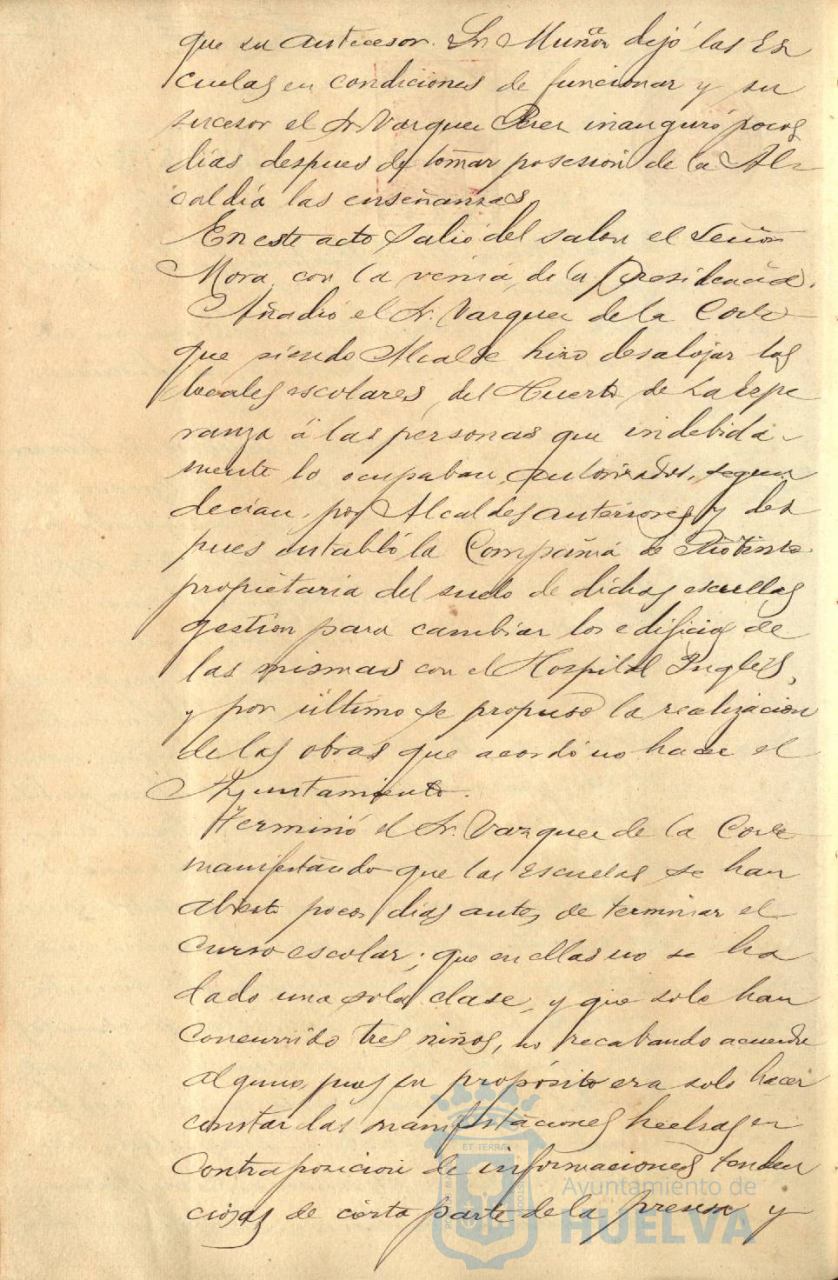 que su antecesor Sr. Muñoz dejó las Es
cuelas en condiciones de funcionar y su
sucesor el Sr. Vazquez Perez inauguró pocos
dias despues de tomar posesion de la Al-
caldia las enseñanzas
En este acto salió del salon el Señor
Mora con la venia de la Presidencia.
Añadió el Sr. Vazquez de la Corte
que siendo Alcalde hizo desalojar los
locales escolares, del Huerto de La Espe
ranza á las personas que indebida-
mente lo ocupaban, autorizadas, segun
decian, por Alcaldes anteriores y des
pues entabló la Compañia de Rio Tinto
propietaria del suelo de dichas escuelas
gestion para cambiar los edificios de
las mismas con el Hospital Inglés,
y por último se propuso la realizacion
de las obras que acordó no hacer el
Ayuntamiento.
Terminó el Sr. Vazquez de la Corte
manifestando que las Escuelas se han
abierto pocos dias antes de terminar el
curso escolar; que en ellas no se ha
dado una sola clase, y que solo han
concurrido tres niños, no recabando acuerdo
alguno, pues su propósito era solo hacer
constar las manifestaciones hechas en
contraposicion de informaciones tenden
ciosas de cierta parte de la prensa y
ET TERRA
Ayuntamiento de
HUELVA